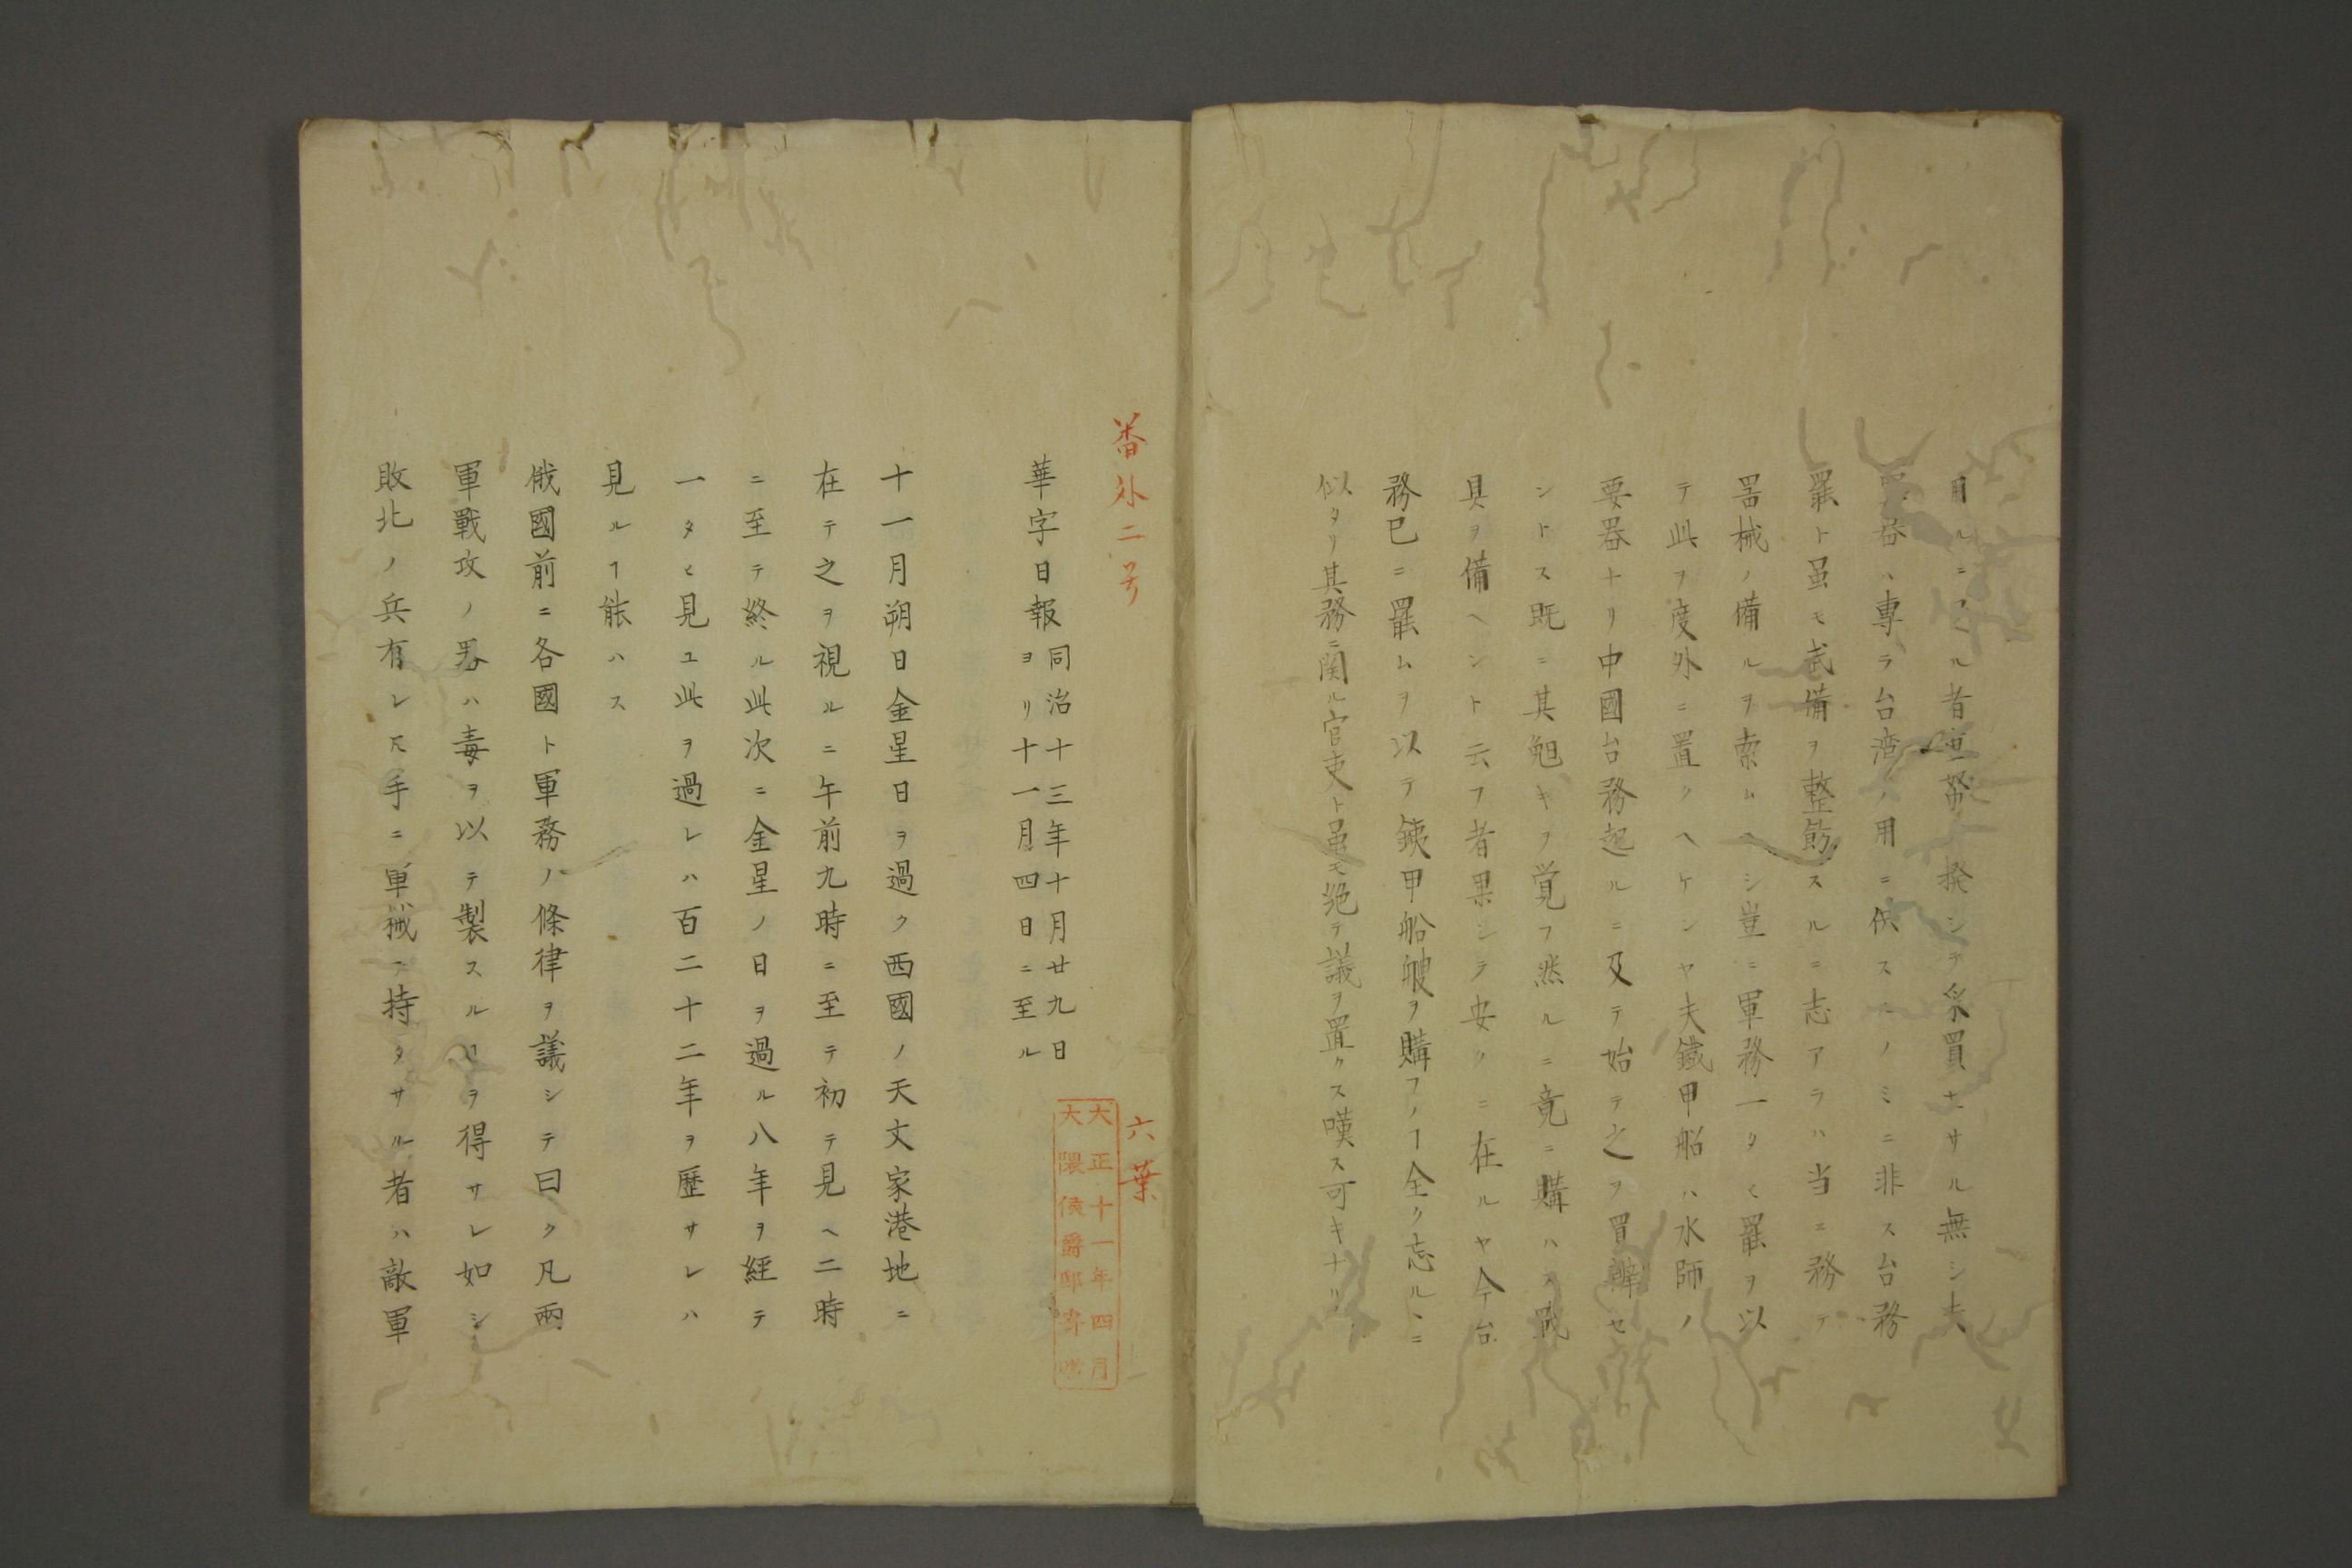 用ルニ足ル者並発シテ采買セサル無シ夫
器ハ専ラ台湾ノ用ニ供スルノミニ非ス台務
罷ト虽モ武備ヲ整飭スルニ志アラハ当ニ務テ
噐械ノ備ルヲ索ムヘシ豈ニ軍務一タヒ罷ヲ以
テ此ヲ度外ニ置クヘケンヤ夫鐵甲船ハ水師ノ
要器ナリ中國台務起ルニ及テ始テ之ヲ買辦セ
ントス既ニ其勉キヲ覚フ然ルニ竟ニ購ハス戦
具ヲ備ヘント云フ者果シテ安クニ在ルヤ今台
務已ニ罷ムヲ以テ鉄甲船艘ヲ購フノヿ全ク忘ルヽニ
似タリ其務ニ関ル官吏ト虽モ絶テ議ヲ置クス嘆ス可キナリ
番外二号
六葉
華字日報
同治十三年十月廿九日
ヨリ十一月四日ニ至ル
大正十一年四月
大隈侯爵邸寄贈
十一月朔日金星日ヲ過ク西國ノ天文家港地ニ
在テ之ヲ視ルニ午前九時ニ至テ初テ見ヘ二時
ニ至テ終ル此次ニ金星ノ日ヲ過ル八年ヲ経テ
一タヒ見ユ此ヲ過レハ百二十二年ヲ歴サレハ
見ルヿ能ハス
俄國前ニ各國ト軍務ノ條律ヲ議シテ曰ク凡両
軍戰攻ノ噐ハ毒ヲ以テ製スルヿヲ得サレ如シ
敗北ノ兵有レ𪜈手ニ軍械ヲ持タサル者ハ敵軍